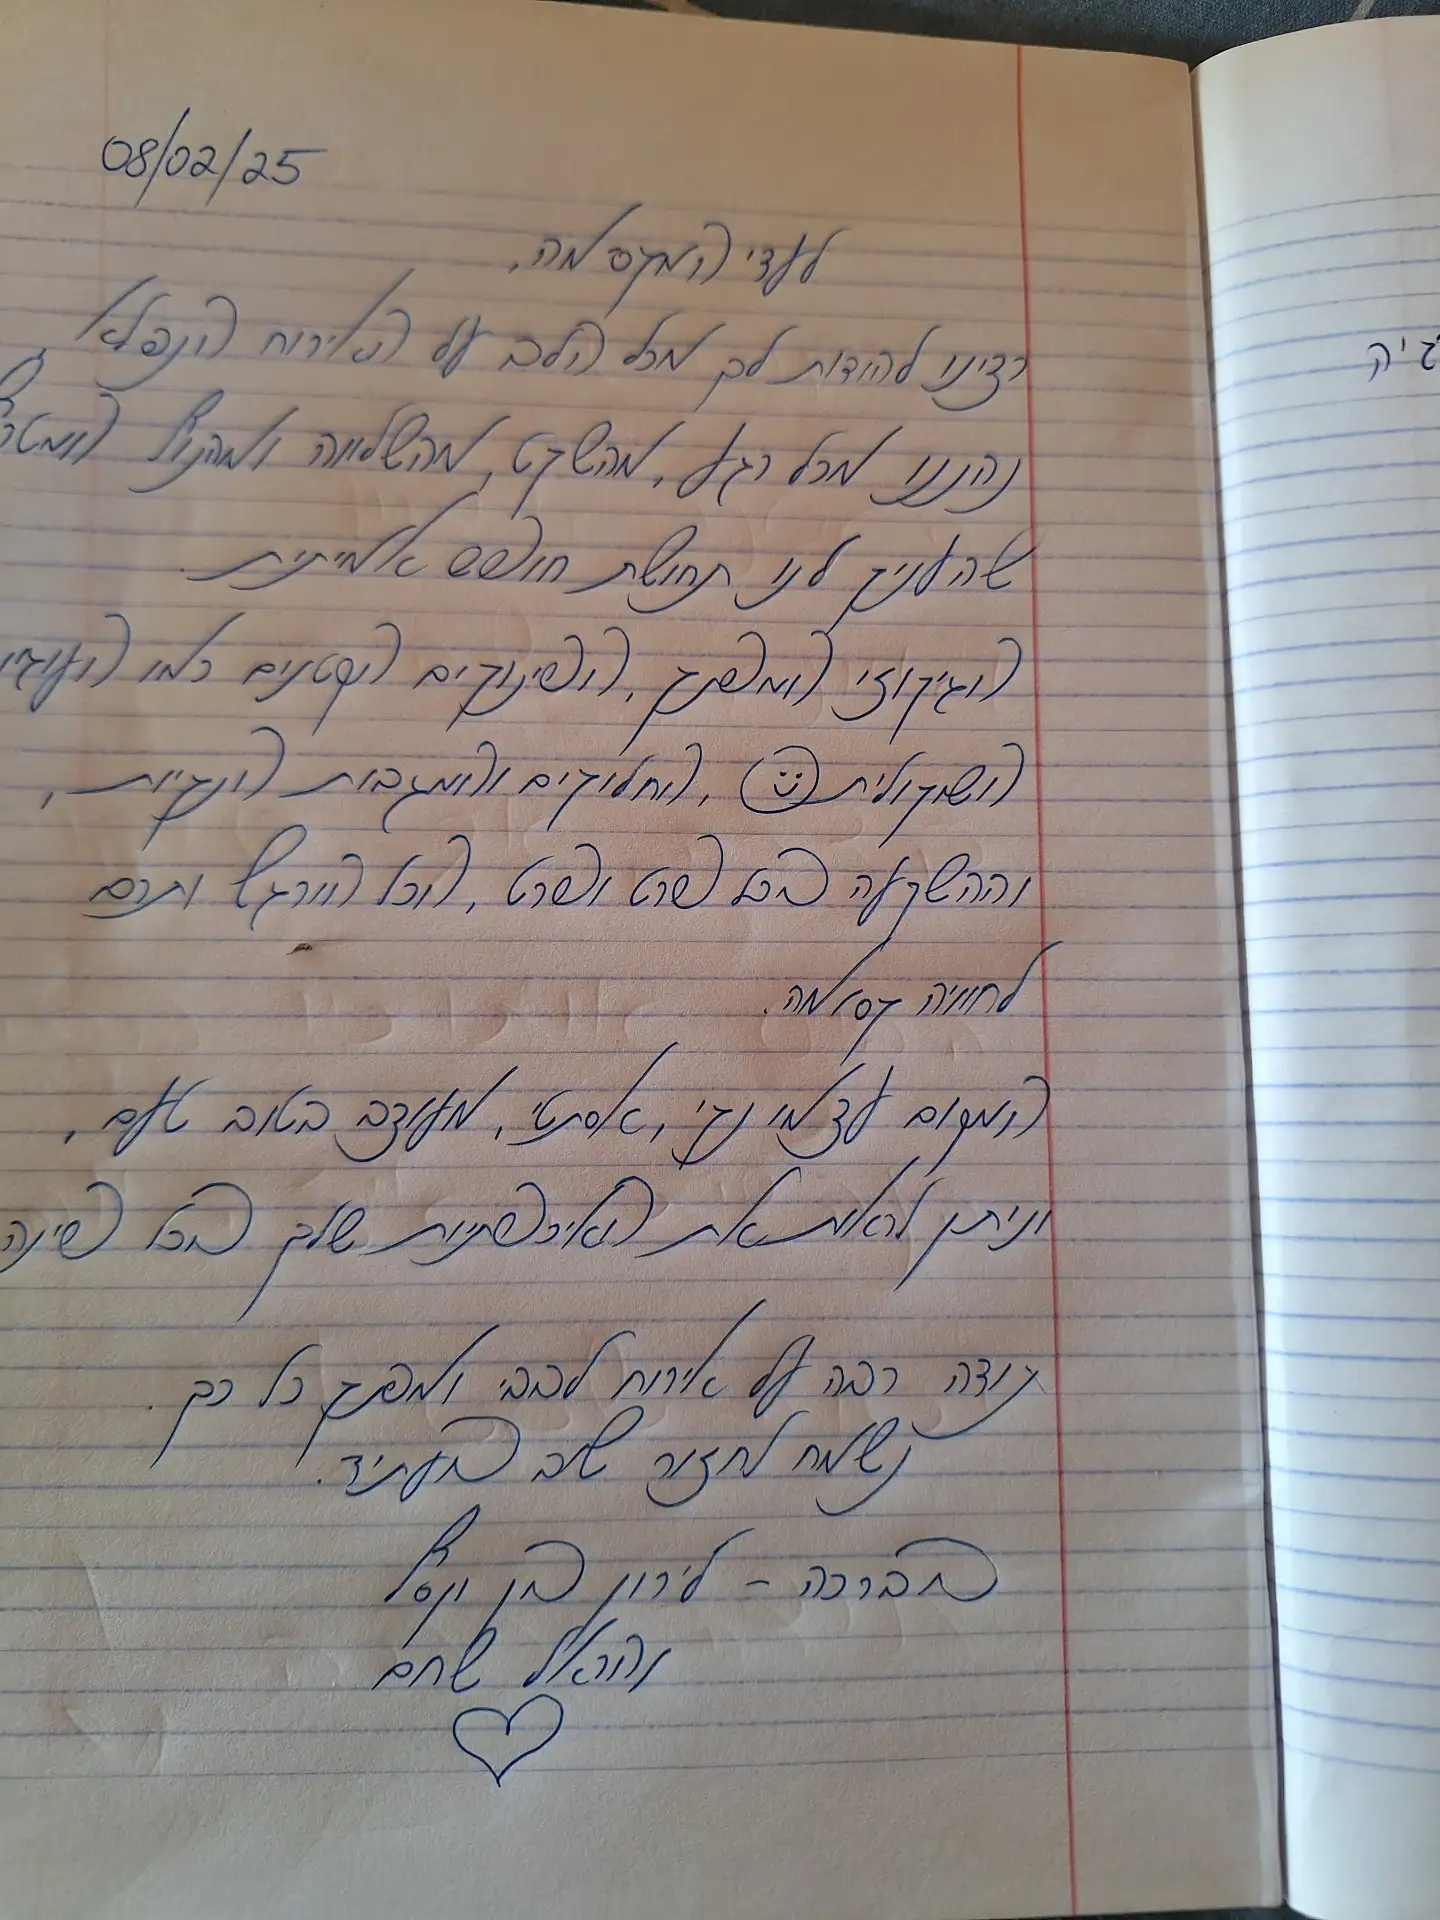 08/02/25
לעדי המקסימה,
רצינו להודות לך מכל הלב על האירוח הנפלא
נהננו מכל רגע, מהשקט, מהשלווה ומהנוף
שהעניק לנו תחושת חופש אמיתית.
הג'קוזי המפנק, הפינוקים הקטנים כמו
השוקולית, החלוקים והמגבות הנקיות,
וההשקעה בכל פרט ופרט, הכל הורגש ותרם
לחוויה קסומה.
המקום עצמו נקי, אסתטי, מעוצב בטוב טעם,
וניתן לראות את האיכפתיות שלך בכל פינה
תודה רבה על אירוח לבבי ומפנק כל כך.
נשמח לחזור שוב בעתיד.
בברכה - לירון בן
והראל שחם